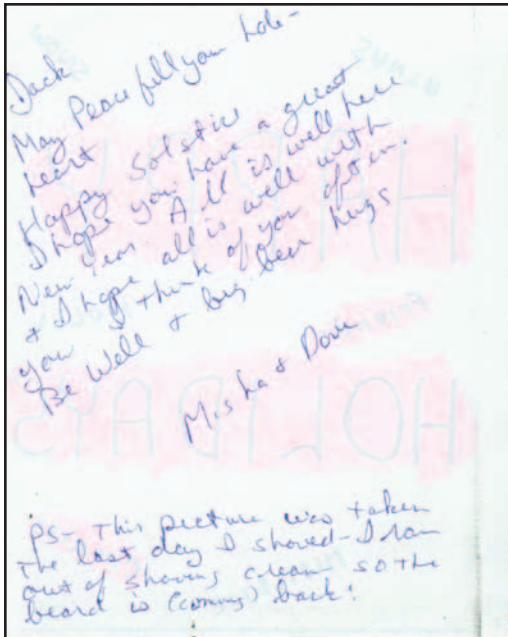 Dack
May Peace fill your hole-
heart
Happy Solstice
I hope you have a great
New Year All is well here
& I hope all is well with
you I think of you often.
Be Well & big bear hugs
Misha & Dove
HOLIDAYS
PS- This picture was taken
The last day I shaved- I ran
out of shaving cream so the
beard is (coming) back!